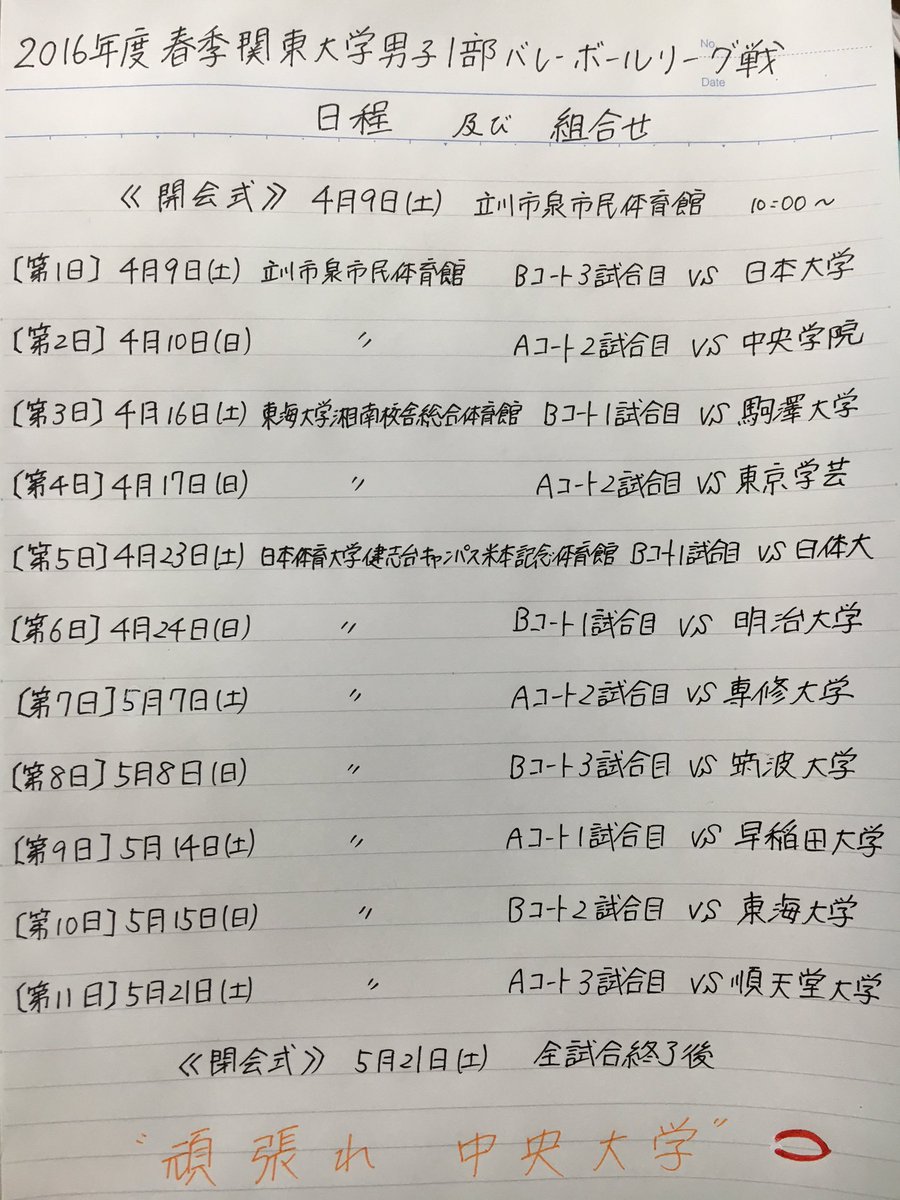 2016年度 春季関東大学男子1部バレーボールリーグ戦
No.
Date
日程 及び 組合せ
《開会式》 4月9日(土) 立川市泉市民体育館 10:00〜
[第1日] 4月9日(土) 立川市泉市民体育館 Bコート3試合目 VS 日本大学
[第2日] 4月10日(日) 〃 Aコート2試合目 VS 中央学院
[第3日] 4月16日(土) 東海大学湘南校舎総合体育館 Bコート1試合目 VS 駒澤大学
[第4日] 4月17日(日) 〃 Aコート2試合目 VS 東京学芸
[第5日] 4月23日(土) 日本体育大学健志台キャンパス米本記念体育館 Bコート1試合目 VS 日体大
[第6日] 4月24日(日) 〃 Bコート1試合目 VS 明治大学
[第7日] 5月7日(土) 〃 Aコート2試合目 VS 専修大学
[第8日] 5月8日(日) 〃 Bコート3試合目 VS 筑波大学
[第9日] 5月14日(土) 〃 Aコート1試合目 VS 早稲田大学
[第10日] 5月15日(日) 〃 Bコート2試合目 VS 東海大学
[第11日] 5月21日(土) 〃 Aコート3試合目 VS 順天堂大学
《閉会式》 5月21日(土) 全試合終了後
“頑張れ 中央大学”